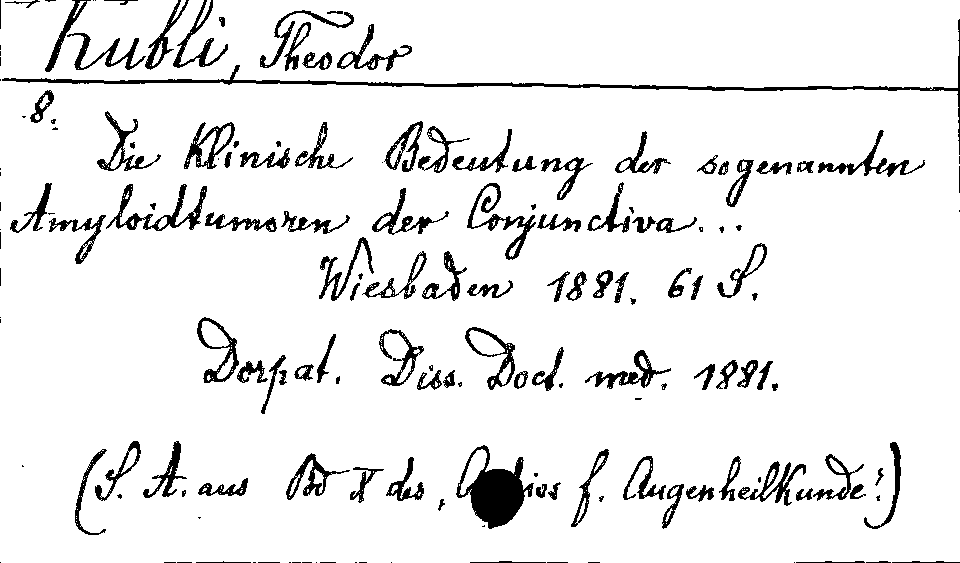 Kubli, Theodor
8.
Die klinische Bedeutung der sogenannten
Amyloidtumoren der Conjunctiva...
Wiesbaden 1881. 61 S.
Dorpat. Diss. Doct. med. 1881.
(S. A. aus Bd X des f. Augenheilkunde".)